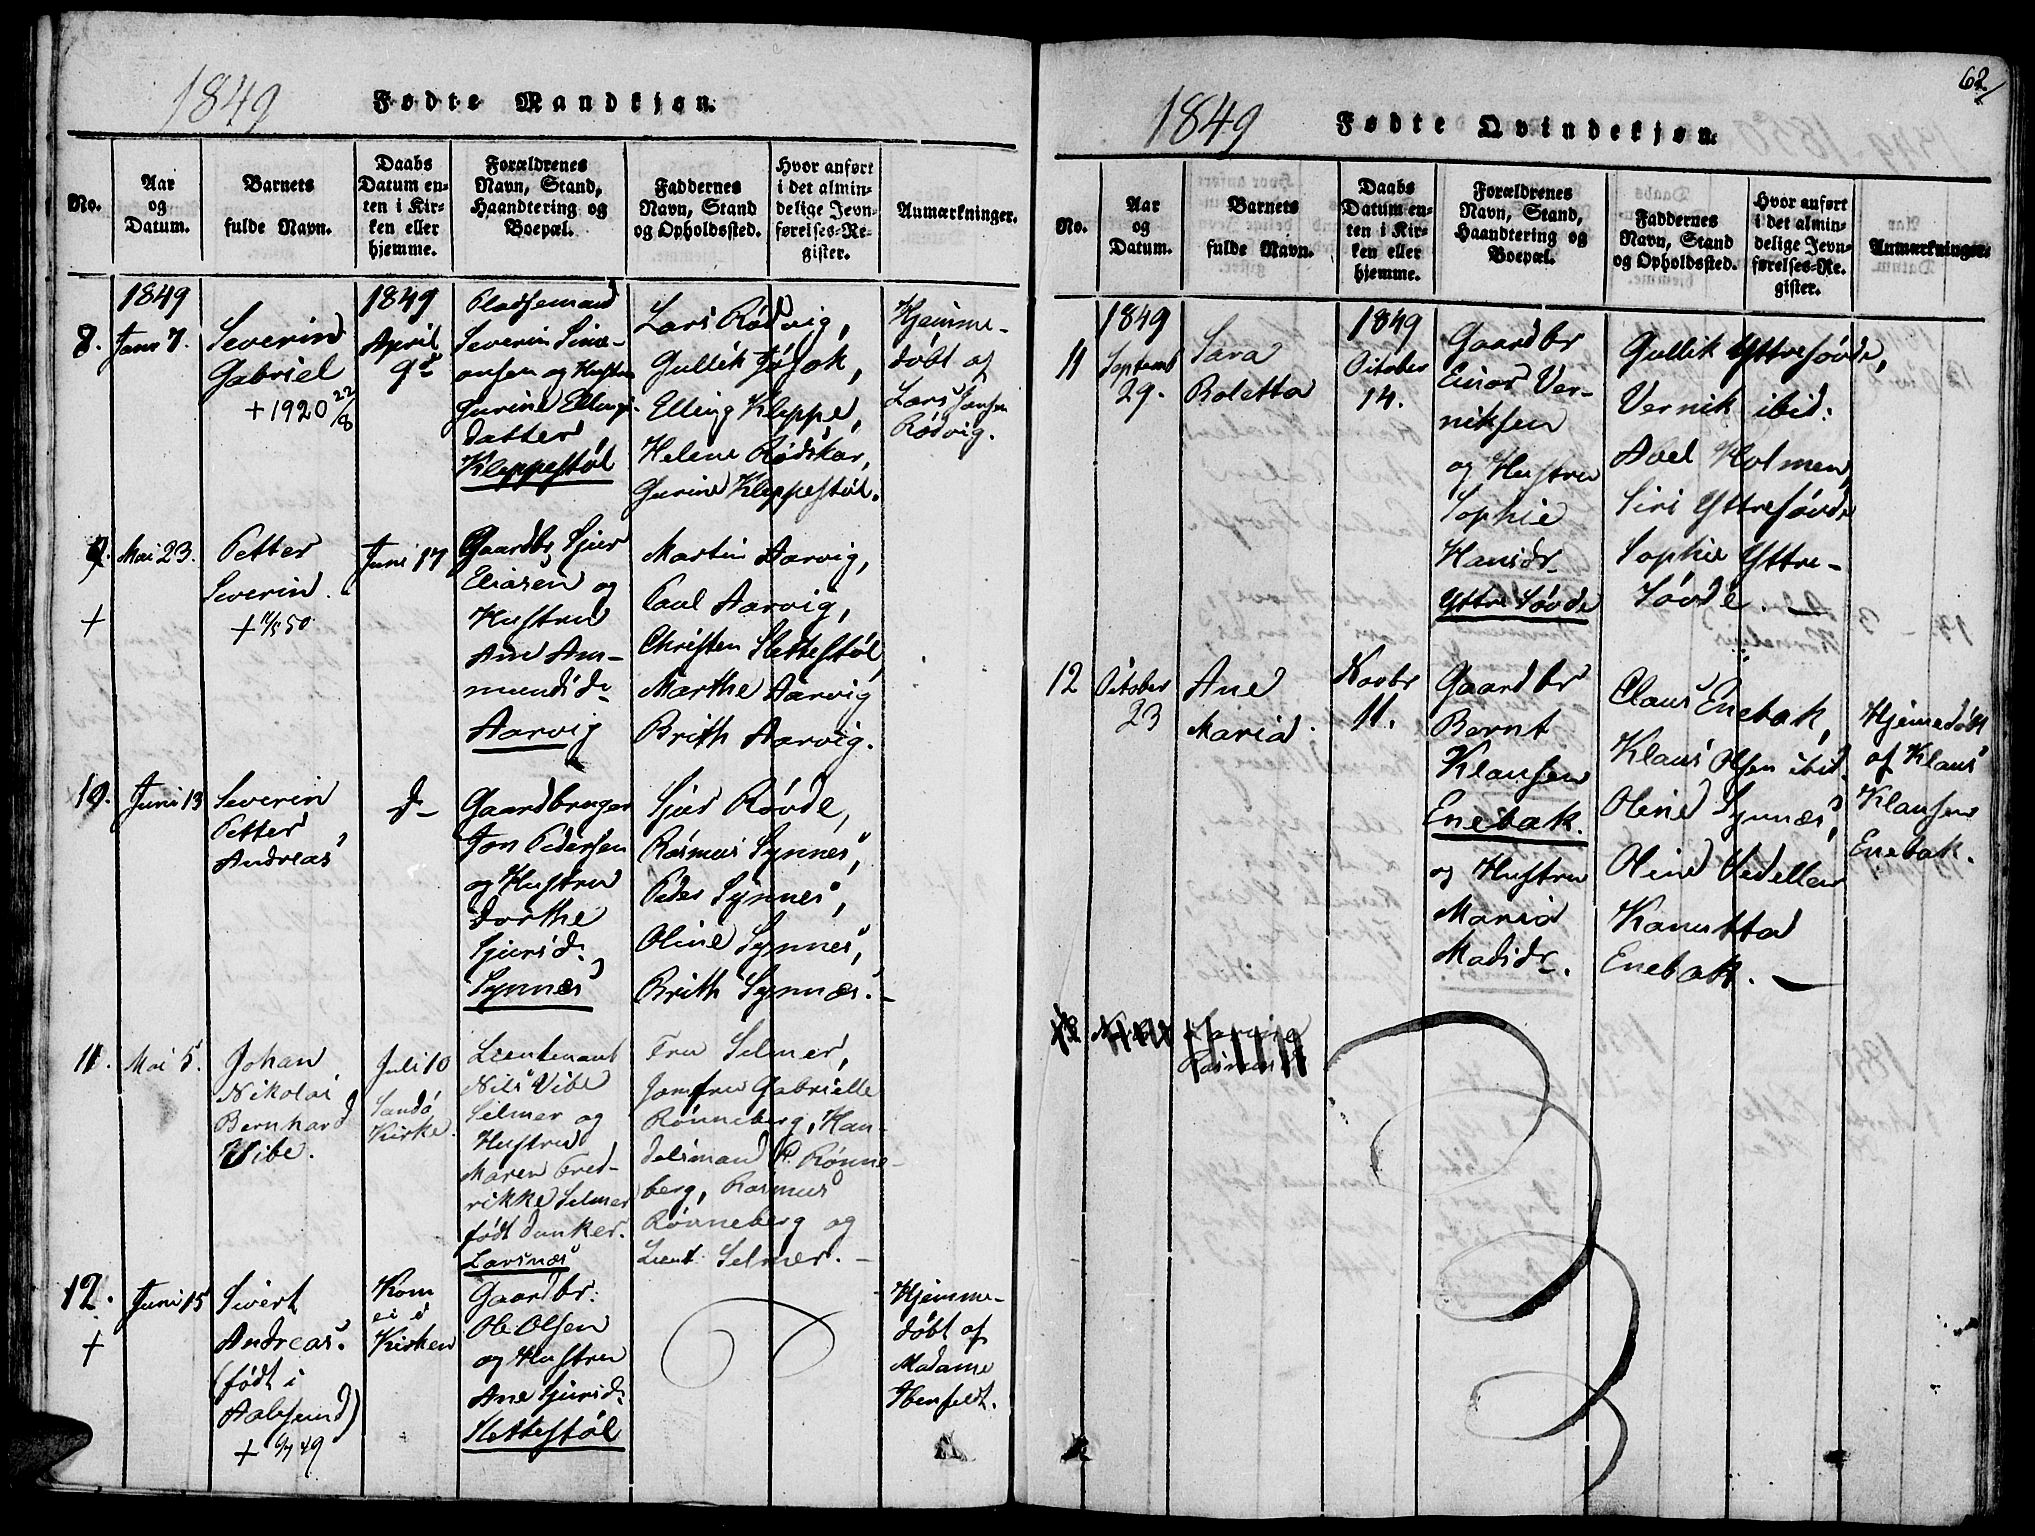 1849 Fødte Mandkjøn.
No.
Aar
og
Datum.
Barnets
fulde Navn.
Daabs
Datum en-
ten i Kir-
ken eller
hjemme.
Forældrenes
Navn, Stand,
Haandtering og
Boepæl.
Faddernes
Navn, Stand
og Opholdssted.
Hvor anført
i det almin-
delige Jevn-
førelses-Re-
gister.
Anmærkninger.
8.
1849
Janr 7.
Severin
Gabriel
+ 1920 22/8
1849
April
9d
Pladsemand
Severin Sime-
onsen og Hustru
Gurine Ellings-
datter
Kleppestøl
Lars Rødvig,
Gullik
Elling Kleppe,
Helene Rødskar,
Gurine Kleppestøl.
Hjemme-
døbt af
Lars Jonsen
Rødvig.
9.
+
Mai 23.
Petter
Severin.
Juni 17
Gaardbr. Sjur
Eliasen og
Hustru
Ane Am-
mundsd-
Aarvig
Martin Aarvig,
Paul Aarvig,
Christen Slettestøl
Marthe Aarvig
Brith Aarvig.
10.
Juni 13
Severin
Petter
Andreas
d-
Gaardbruger
Jon Pedersen
og Hustru
Dorthe
Sjursd.
Synnes
Sjur Røvde,
Rasmus Synnes,
Peder Synnes,
Oline Synnes,
Brith Synnæs. -
11.
Mai 5.
Johan
Nikolai
Bernhard
Vibe.
Juli 10
Sandø
Kirke.
Lieutenant
Nils Vibe
Selmer og
Hustru
Maren Fred-
rikke Selmer
født Dunker.
Larsnæs
Fru Selmer,
Jomfru Gabrielle
Rønneberg, Han-
delsmand P. Rønne-
berg, Rasmus
Rønneberg og
Lieut. Selmer. -
12.
+
Juni 15
Sivert
Andreas.
(født i
Aalesund)
Kom
ei i
Kirken
Gaardbr:
Ole Olsen
og Hustru
Ane Sjursd.
Slettestøl
Hjemme-
døbt af
Madame
Ibenfeldt.
62
1849 Fødte Qvindekjøn.
No.
Aar
og
Datum.
Barnets
fulde Navn.
Daabs
Datum en-
ten i Kir-
ken eller
hjemme.
Forældrenes
Navn, Stand,
Haandtering og
Boepæl.
Faddernes
Navn, Stand
og Opholdssted.
Hvor anført
i det almin-
delige Jevn-
førelses-Re-
gister.
Anmærkninger.
11
1849
Septembr
29.
Sara
Boletta
1849
October
14.
Gaardbr
Einar Ver-
niksen
og Hustru
Sophie
Hansdr-
Yttre Søvde
Gullik Yttresøvde,
Vernik ibid:
Abel Holmen,
Siri Yttresøvde
Sophie Yttre-
Søvde. -
12
October
23
Ane
Maria.
Novbr
11.
Gaardbr
Bernt
Klausen
Enebak.
og Hustru
Maria
Madsdr-.
Claus Enebak,
Klaus Olsen ibid.
Oline Synnæs,
Oline Vedeller
Kanutta
Enebak. -
Hjemmedøbt
af Klaus
Klausen
Enebak.